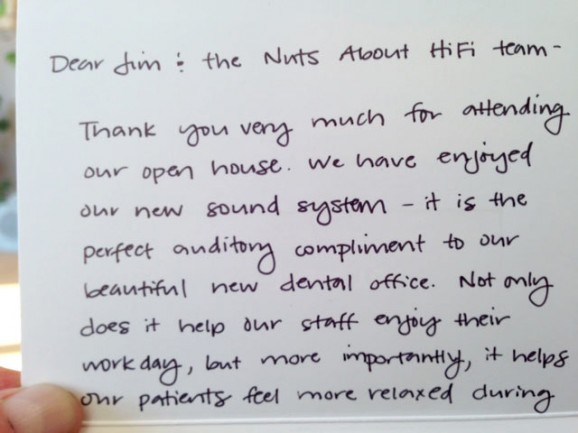 Dear Jim & the Nuts About HiFi team -
Thank you very much for attending
our open house. We have enjoyed
our new sound system - it is the
perfect auditory compliment to our
beautiful new dental office. Not only
does it help our staff enjoy their
workday, but more importantly, it helps
our patients feel more relaxed during